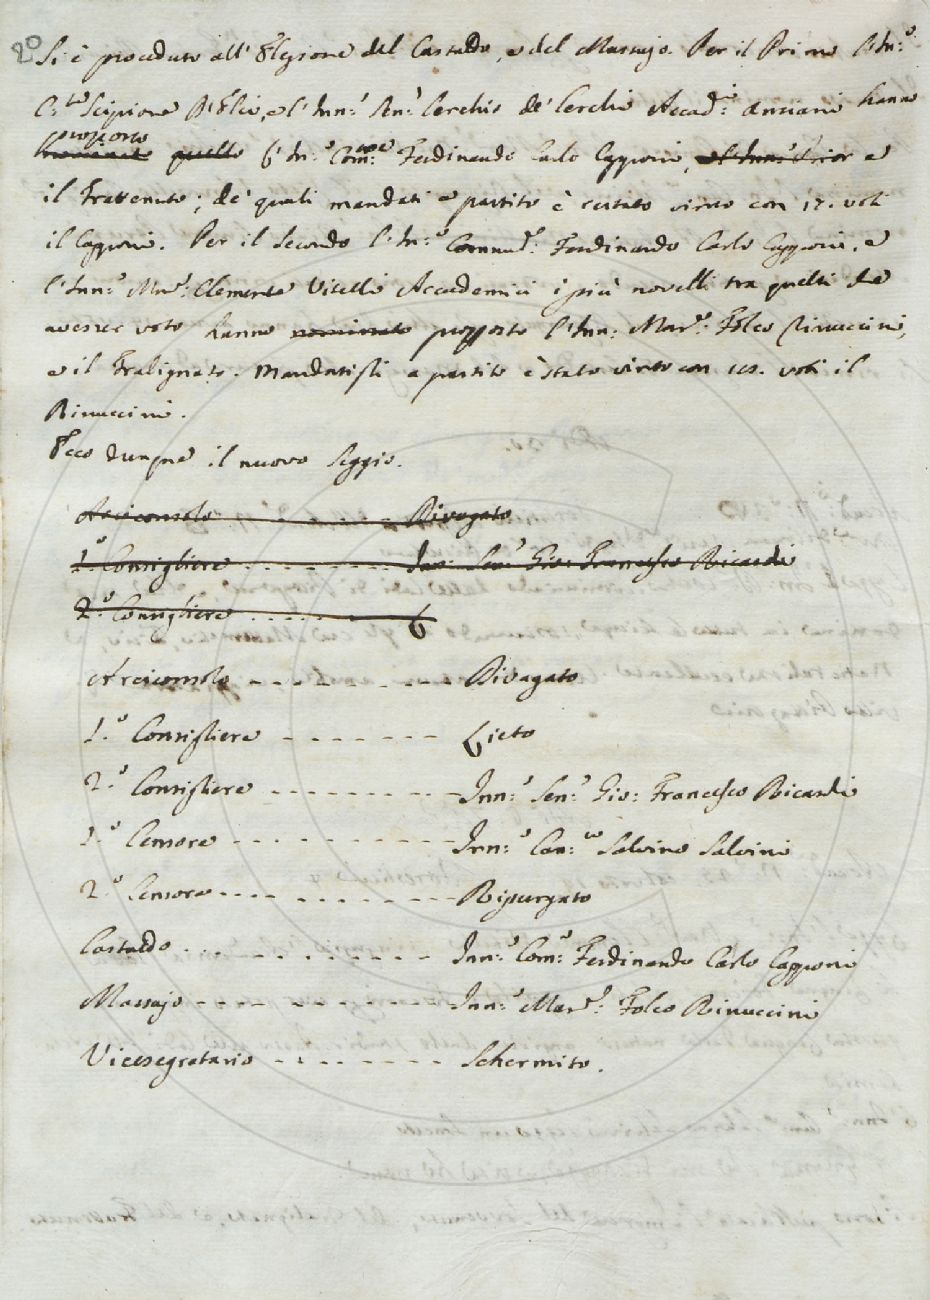 20
Si è proceduto all'Elezione del Castaldo, e del Massajo. Per il Primo l'In:o
C:te Scipione d'Elci, e l'Inn:o Sen:e Cerchio de' Cerchi Accad:i Anziani hanno
proposto
nominato quello l'In:o Com:re Ferdinando Carlo Capponi, e l'Inn:o Prior e
il Trattenuto; de' quali mandati a partito è restato vinto con 17. voti
il Capponi. Per il Secondo l'In:o Commend:e Ferdinando Carlo Capponi, e
l'Inn:o Mar:e Clemente Vitelli Accademici i più novelli tra quelli che
avesser voto hanno nominato proposto l'Inn: Mar:e Folco Rinuccini,
e il Tralignato. Mandatisi a partito è stato vinto con voti il
Rinuccini.
Ecco dunque il nuovo Seggio.
Arciconsolo - - - - - - - Divagato
1.o Consigliere - - - - - - - Inn:o Sen:e Gio: Francesco Ricardi
2.o Consigliere - - - - - - - L
Arciconsolo - - - - - - - Divagato
1.o Consigliere - - - - - - - Lieto
2.o Consigliere - - - - - - - Inn:o Sen:e Gio: Francesco Ricardi
1.o Censore - - - - - - - Inn:o Can:co Salvino Salvini
2.o Censore - - - - - - - Ripurgato
Castaldo - - - - - - - Inn:o Com:e Ferdinando Carlo Capponi
Massajo - - - - - - - Inn:o Mar:e Folco Rinuccini
Vicesegretario - - - - - - - Schermito.